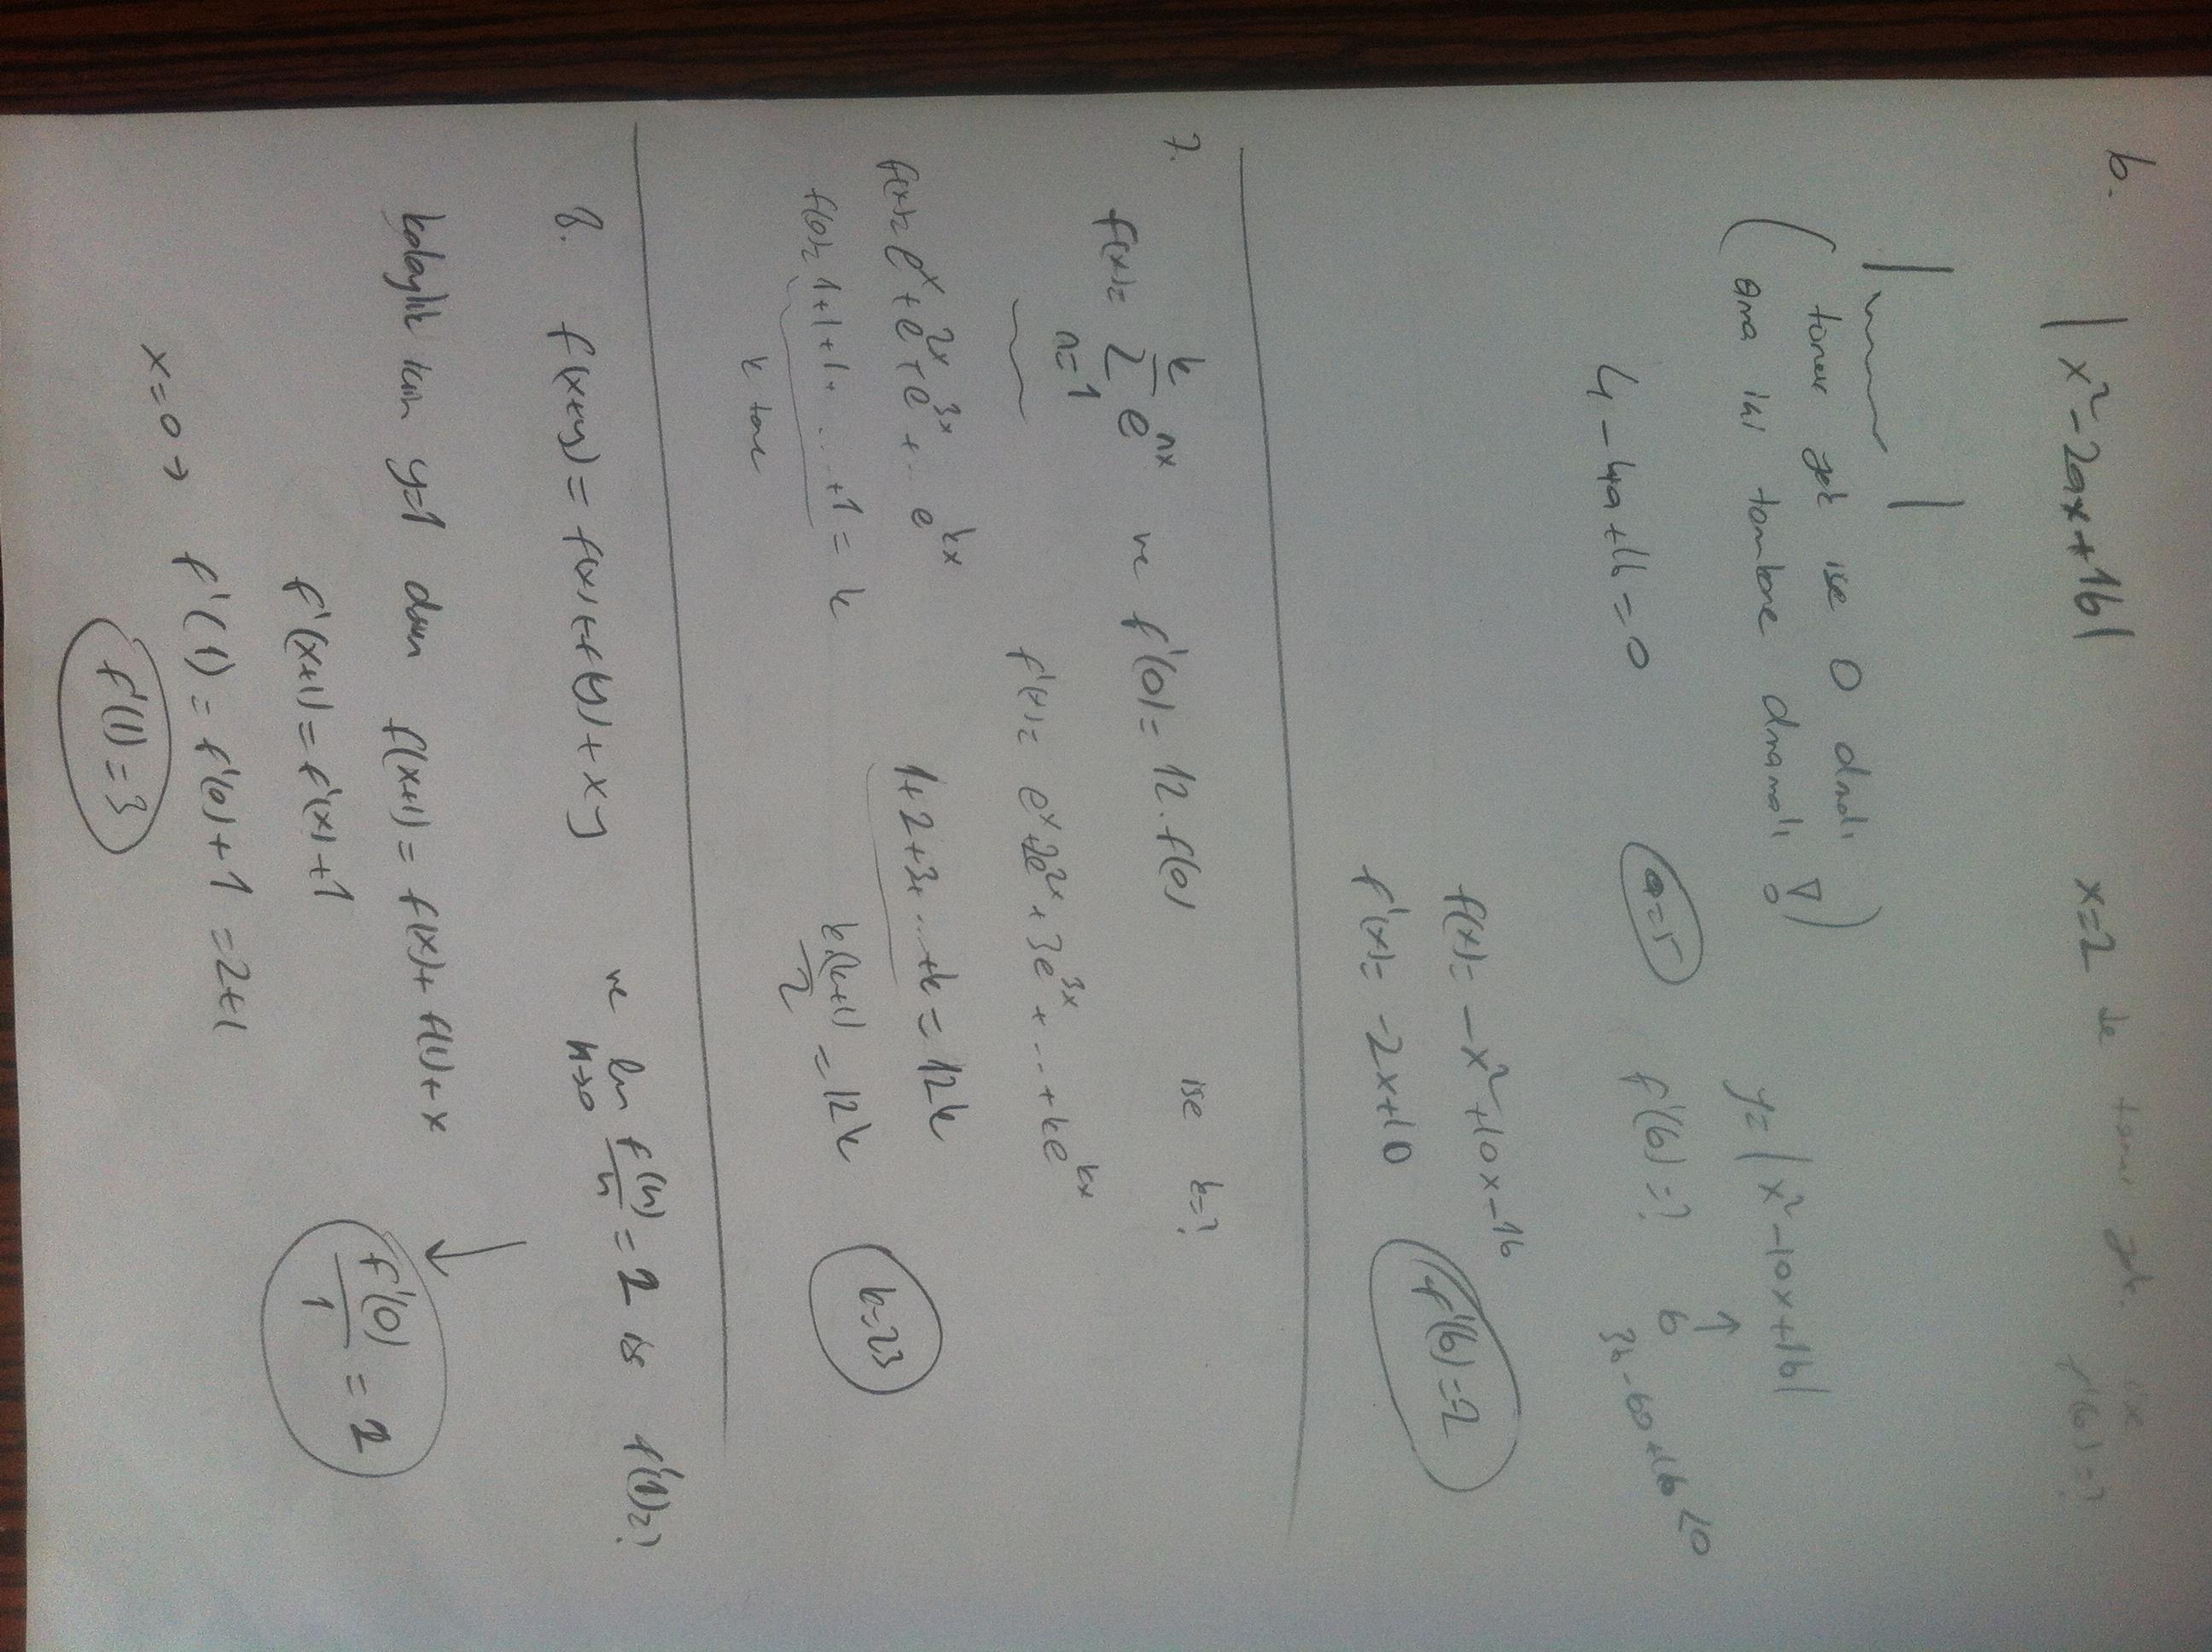 6. |x²-2ax+16| x=2 de türev yok. ise f'(6)=?
( türev yok ise 0 olmalı
ama iki tam kare olmamalı )
y=|x²-10x+16|
4-4a+16=0 a=5 f'(6)=? 6
36-60+16<0
f(x)= -x²+10x-16
f'(x)= -2x+10 f'(6)=-2
7. f(x)= k Σ n=1 e^nx ve f'(0)=12.f(0) ise k=?
f'(x)= e^x+2e^2x+3e^3x+...+ke^kx
f(x)= e^x+e^2x+e^3x+...e^kx
1+2+3+...+k=12k
f(0)= 1+1+1+...+1=k
k tane
k.(k+1)/2 = 12k k=23
8. f(x+y)=f(x)+f(y)+xy ve lim h→0 f(h)/h = 2 ise f'(1)=?
kolaylık için y=1 olsun f(x+1)=f(x)+f(1)+x
f'(0)/1 = 2
f'(x+1)=f'(x)+1
x=0→ f'(1)=f'(0)+1=2+1
f'(1)=3